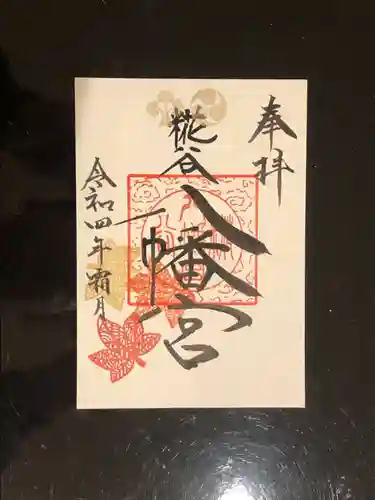 奉拝
糀谷八幡宮
令和四年霜月